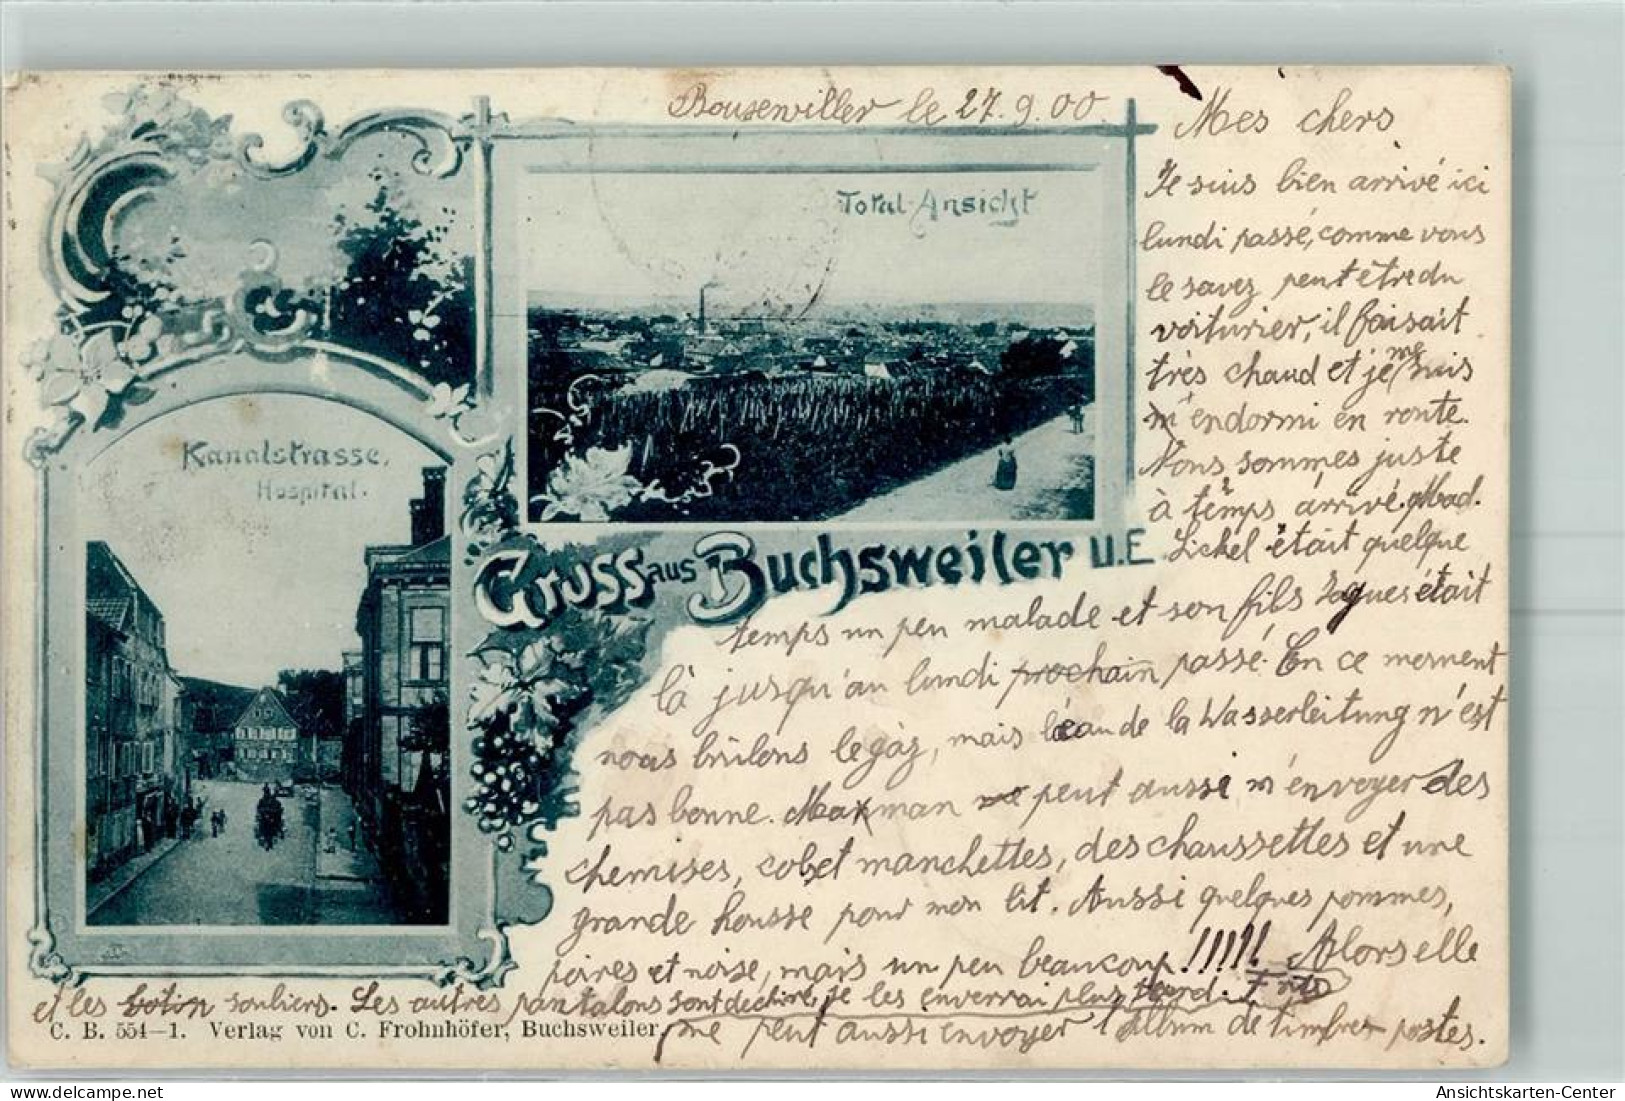 Bouxwiller le 27.9.00.
Mes chers
Je suis bien arrivé ici
lundi passé, comme vous
le savez peut être du
voiturier, il faisait
très chaud et je me suis
m'endormi en route.
Nous sommes juste
à temps arrivé. Mad.
Sichel était quelque
temps un peu malade et son fils Jaques était
là jusqu'au lundi prochain passé. En ce moment
nous brûlons le gaz, mais l'eau de la Wasserleitung n'est
pas bonne. Maxman ne peut aussi m'envoyer des
chemises, col et manchettes, des chaussettes et une
grande housse pour mon lit. Aussi quelques pommes,
poires et noise, mais un peu beaucoup!!!!! Alors elle
me peut aussi envoyer l'album de timbres postes.
et les botin souliers. Les autres pantalons sont déchiré, je les enverrai plus tard. Fritz
Total-Ansicht
Kanalstrasse,
Hospital.
Gruss aus Buchsweiler U.E.
C. B. 554—1. Verlag von C. Frohnhöfer, Buchsweiler,
oldthing.de
Ansichtskarten-Center